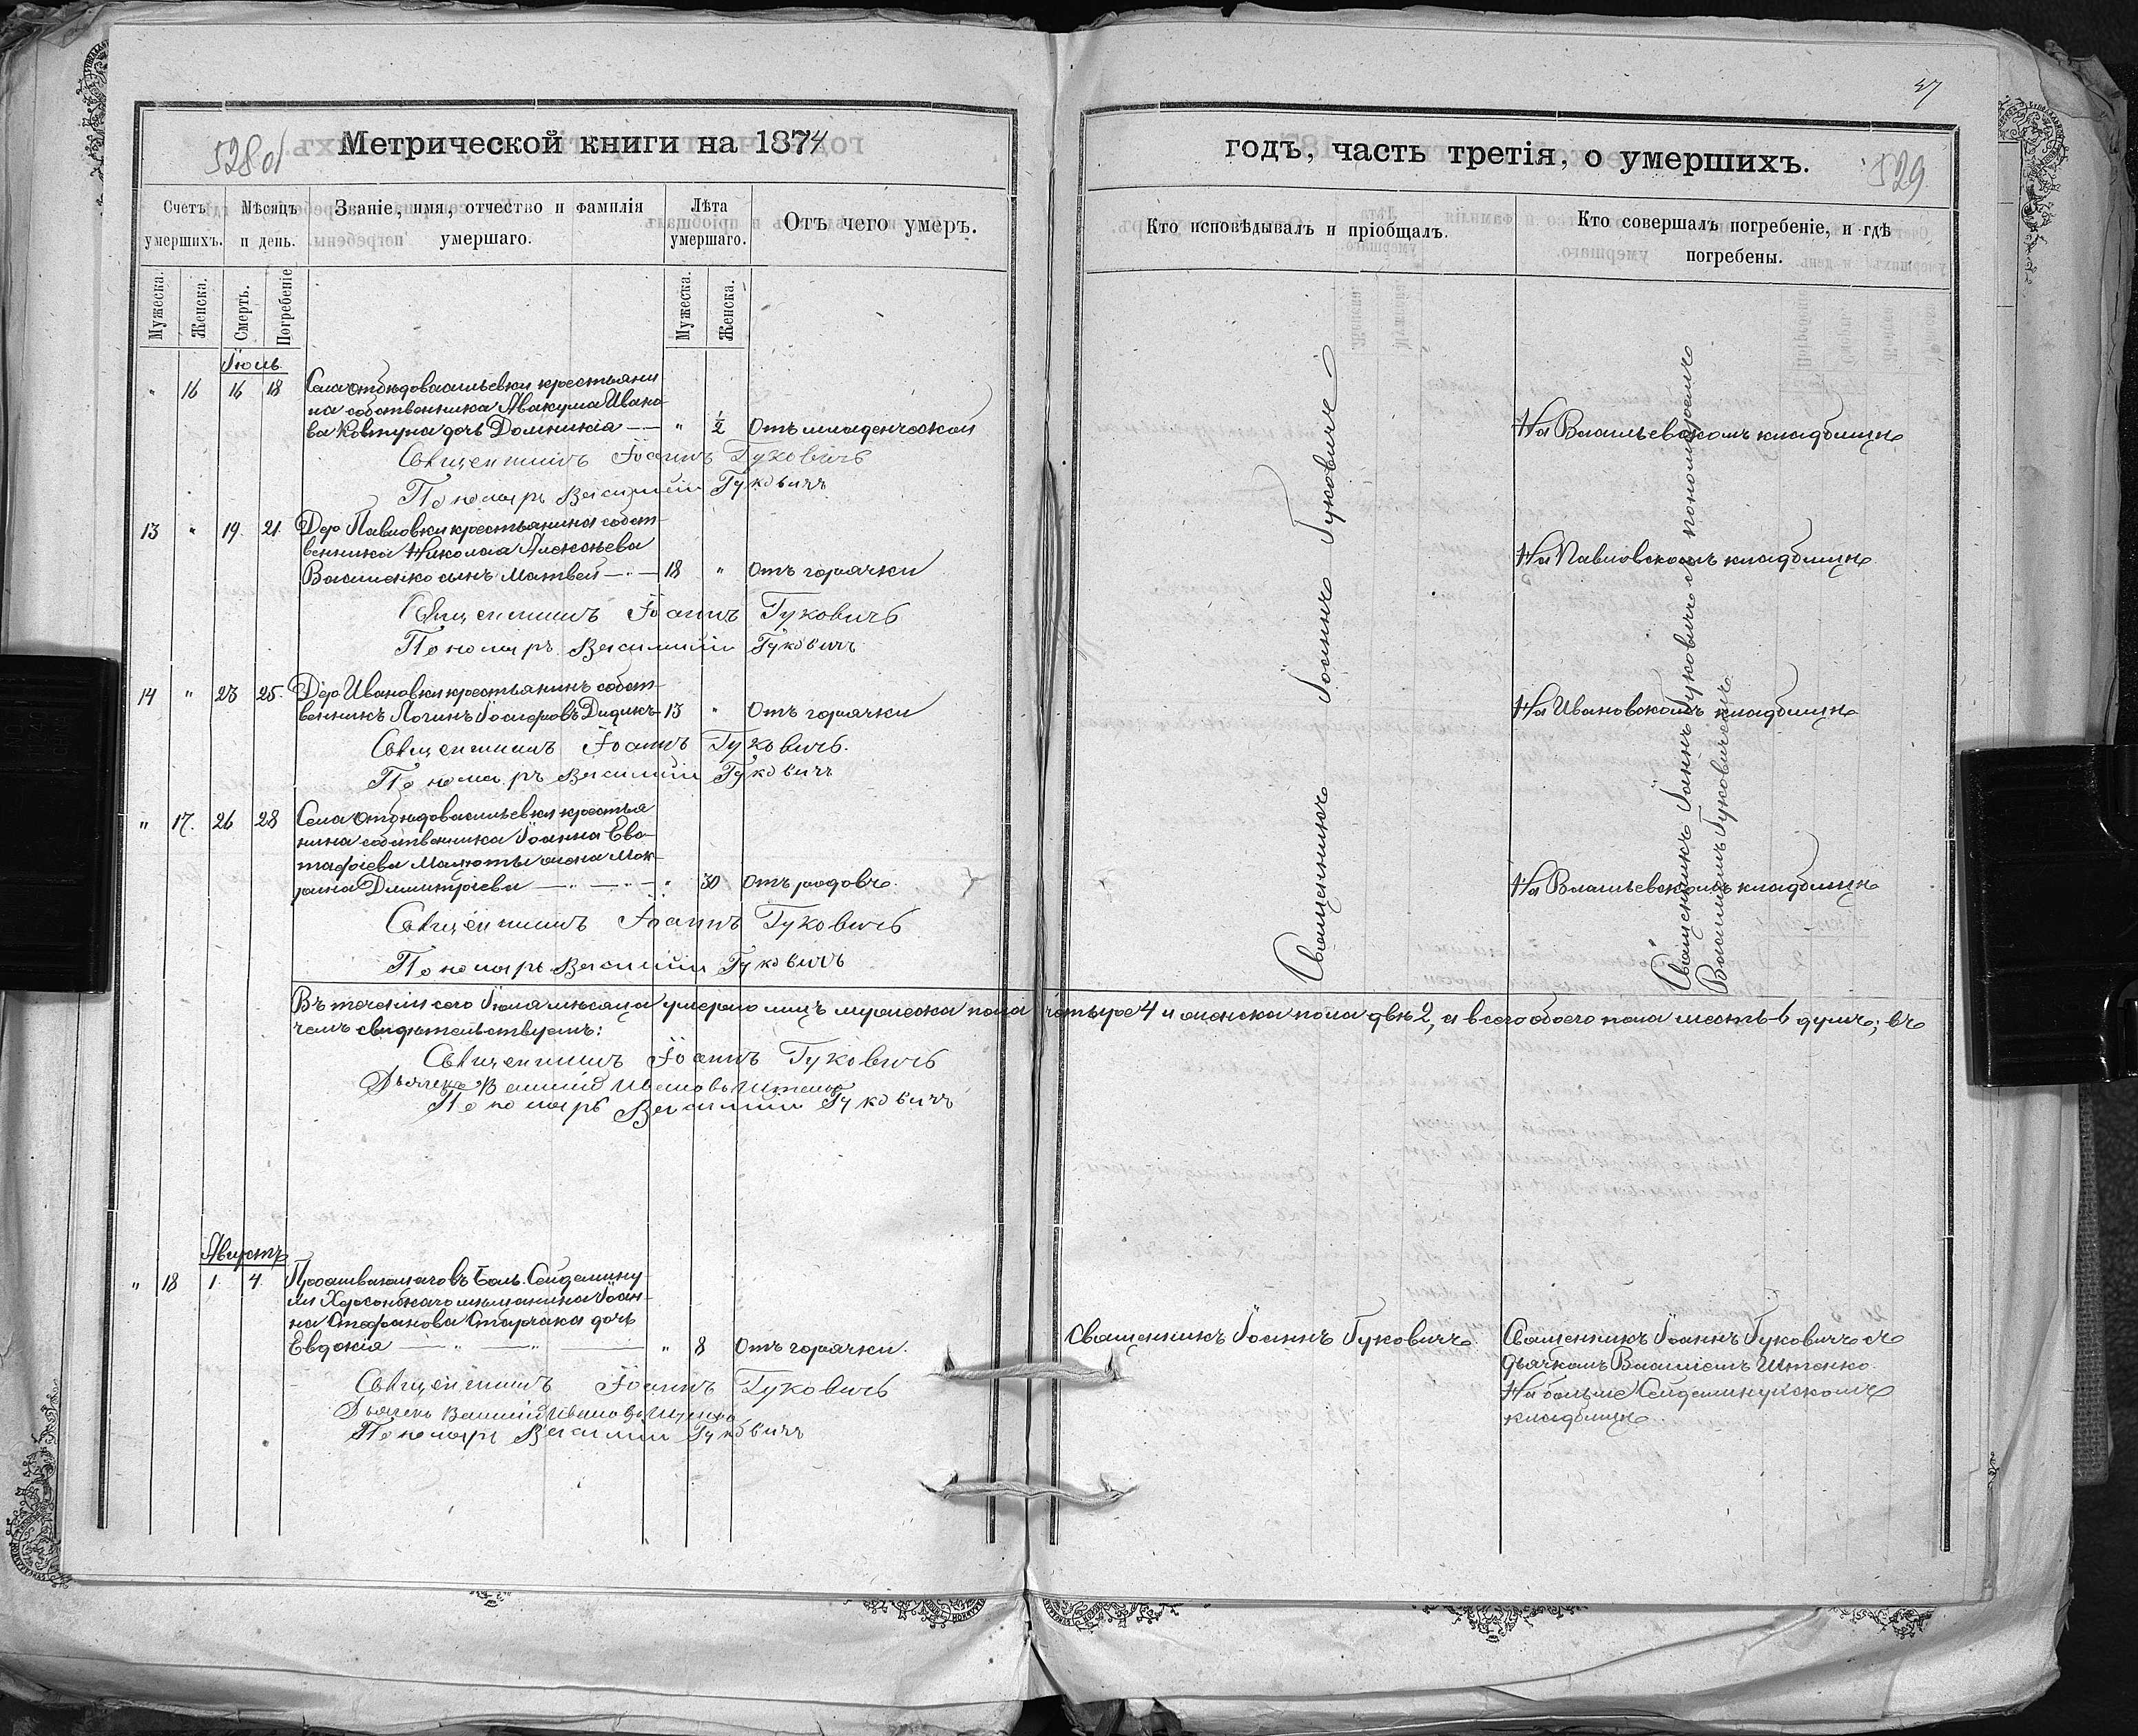 47
528об
Метрической книги на 1874
годъ, часть третія, о умершихъ.
529
Счетъ умершихъ.
Мѣсяцъ и день.
Званіе, имя, отчество и фамилія умершаго.
Лѣта умершаго.
Отъ чего умеръ.
Кто исповѣдывалъ и пріобщалъ.
Кто совершалъ погребеніе, и гдѣ погребены.
Мужеска.
Женска.
Смерть.
Погребеніе
Мужеска.
Женска.
Іюль
" 16 16 18 крестьяни
на собственника Авакума Ивано-
ва Ковтуна дочь Домникія — " 1/2 Отъ младенческой
На Васильевскомъ кладбищѣ
Священникъ Іоаннъ Гуковичъ
Пономарь Василий Гуковичъ
13 " 19. 21. Дер. Павловки крестьянина собст-
венника Николая Алексѣева
Василенко сынъ Матвей — 18 " Отъ горячки
На Павловскомъ кладбищѣ
Священникъ Іоаннъ Гуковичъ
Пономарь Василий Гуковичъ
14 " 23 25. Дер. Ивановки крестьянинъ собст-
венникъ Логинъ Дидикъ 13 " Отъ горячки
На Ивановскомъ кладбищѣ
Священникъ Іоаннъ Гуковичъ.
Пономарь Василий Гуковичъ
" 17. 26 28 Села крестья
нина собственника Іоанна Евс-
тафіева Малюты жена Мок-
рина Димитріева — " 30 Отъ родовъ.
На Васильевскомъ кладбищѣ
Священникъ Іоаннъ Гуковичъ
Пономарь Василий Гуковичъ
Священникъ Іоаннъ Гуковичъ
Священникъ Іоаннъ Гуковичъ съ пономаремъ
Василіемъ Гуковичемъ
Въ теченіи сего Іюля мѣсяца умерло лицъ мужеска пола четыре 4 и женска пола двѣ 2, а всего обоего пола шесть 6 душъ; въ
чемъ свидѣтельствуемъ:
Священникъ Іоаннъ Гуковичъ
Дьячекъ Василий Ивановъ Итенко
Пономарь Василий Гуковичъ
Августъ
" 18 1. 4. Проживающаго въ Боль. Сейдемину-
хи Херсонскаго мѣщанина Іоан-
на Стефанова дочь
Евдокія — " 8 Отъ горячки.
Священникъ Іоаннъ Гуковичъ.
Священникъ Іоаннъ Гуковичъ съ
дьячкомъ Василіемъ Итенко
На больше Сейдеминухскомъ
кладбищѣ.
Священникъ Іоаннъ Гуковичъ
Дьячекъ Василий Ивановъ Итенко
Пономарь Василий Гуковичъ